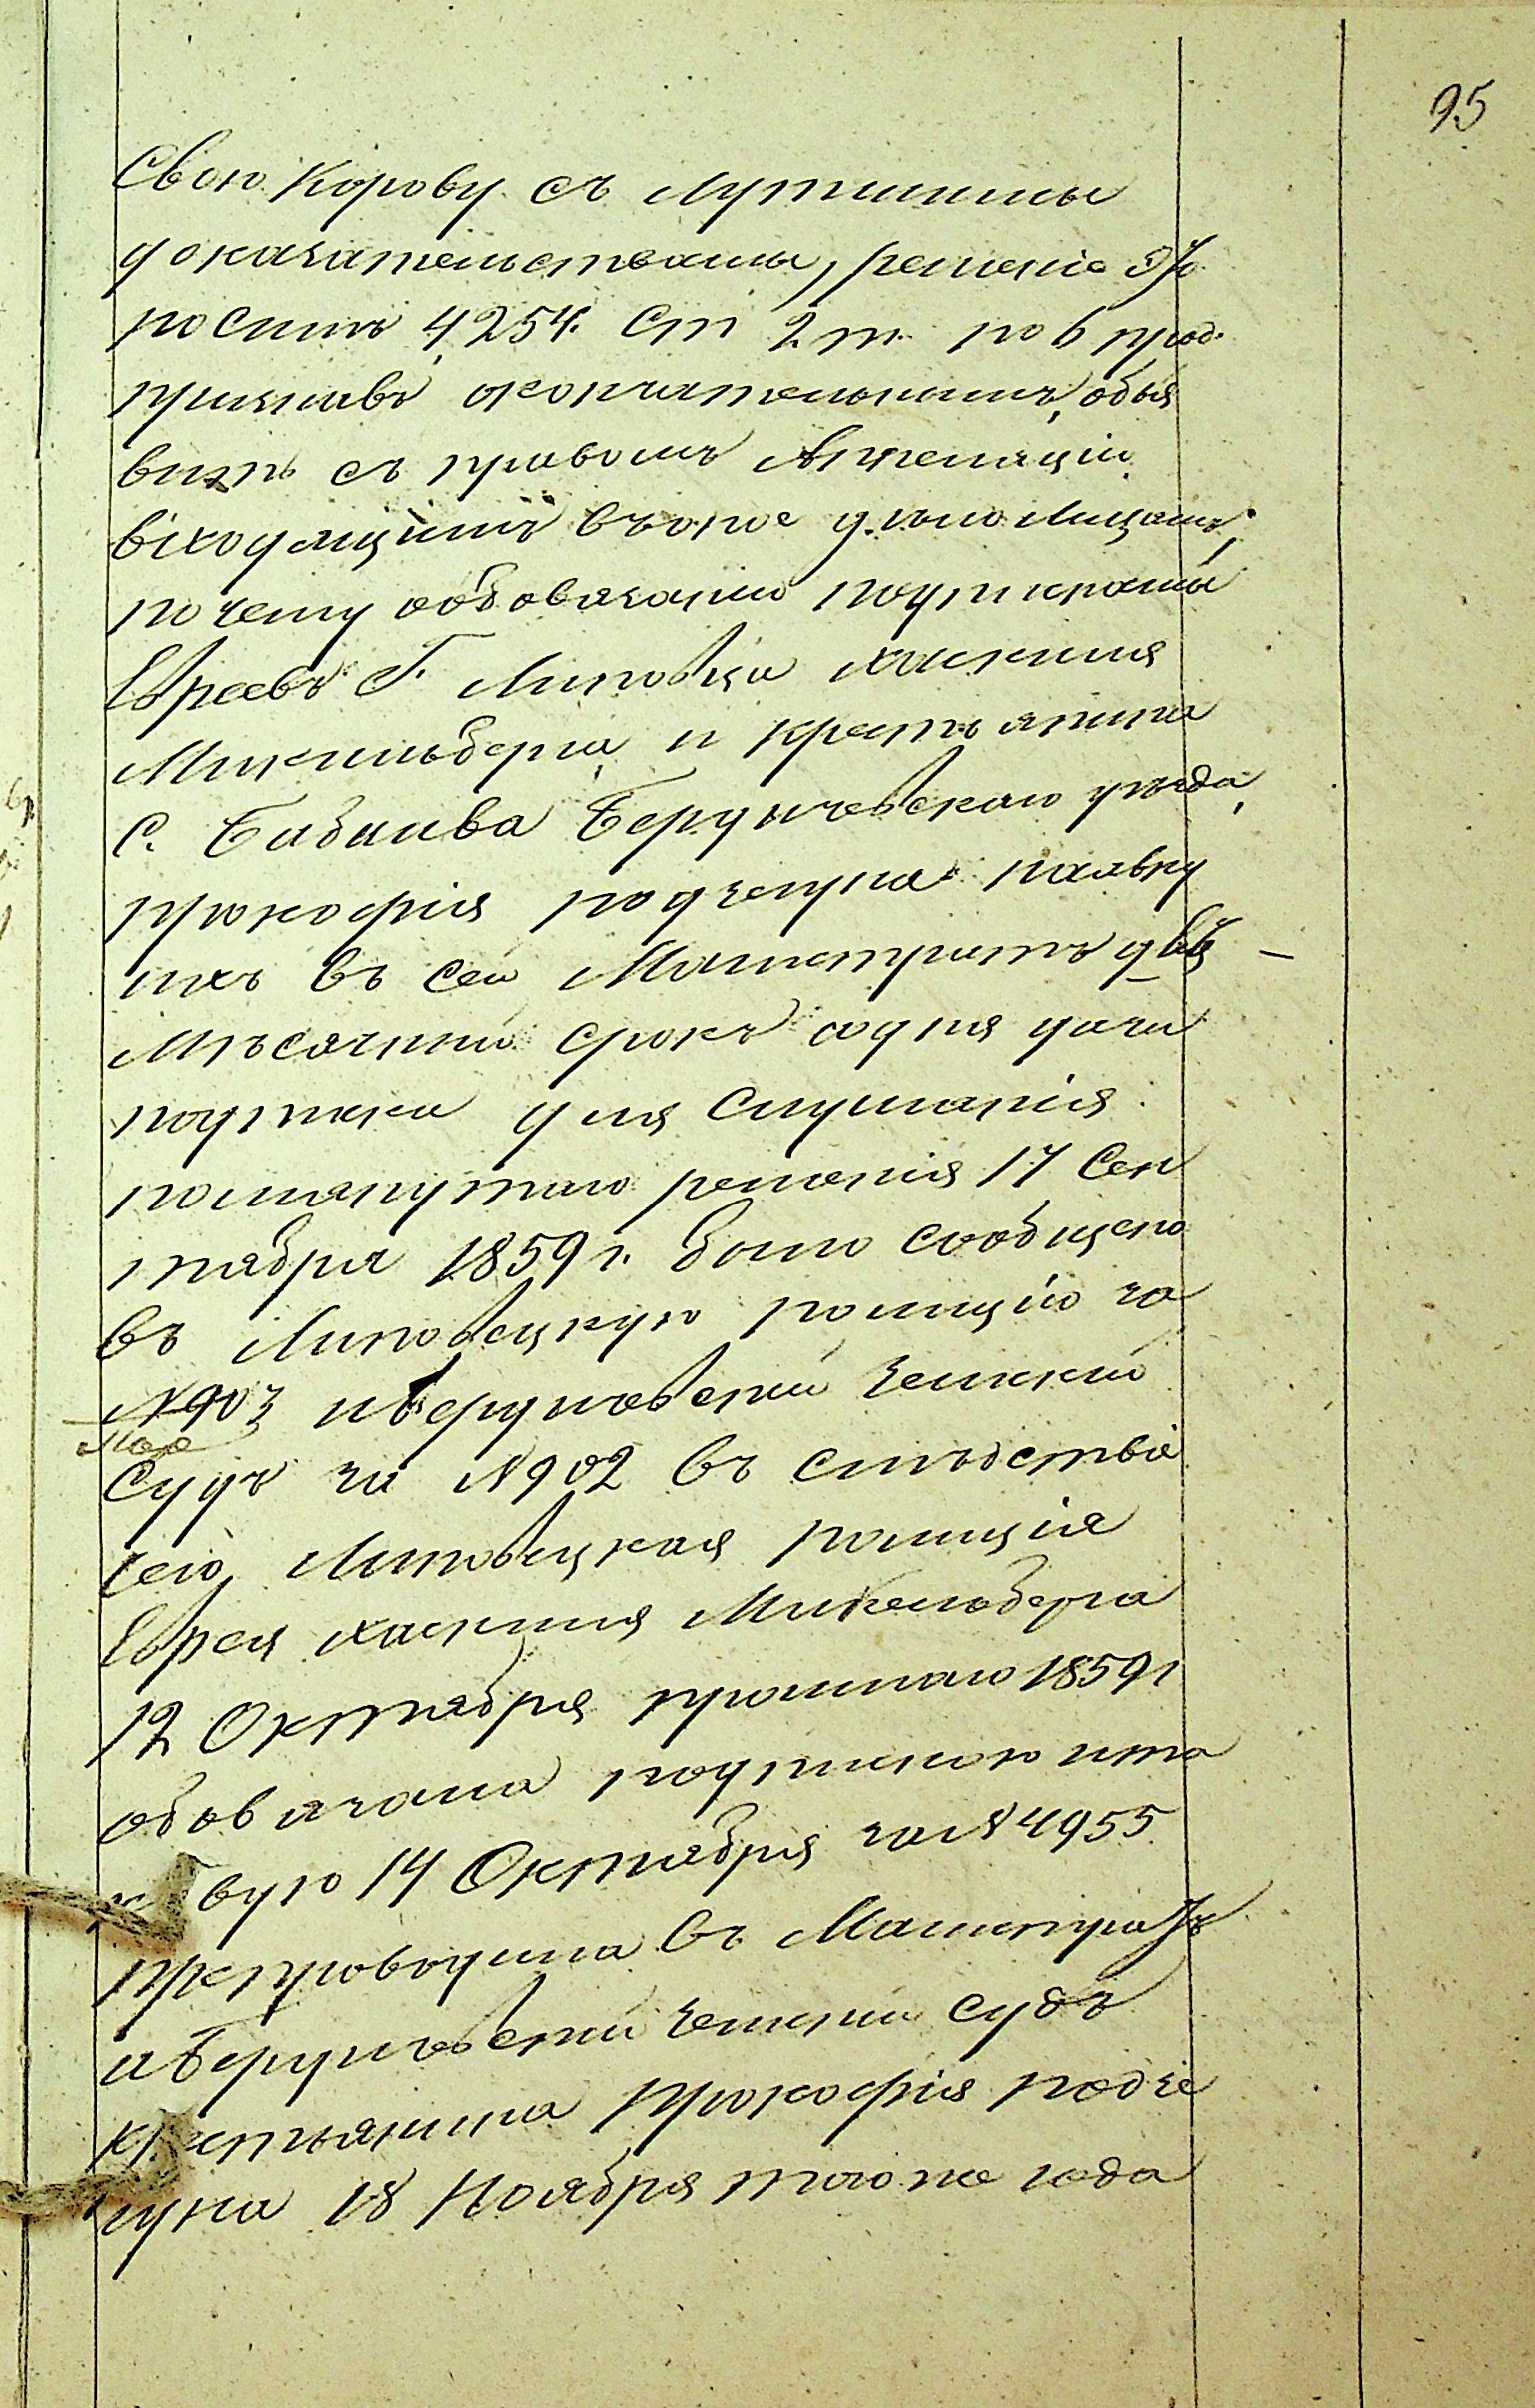 95
Свою Корову съ лутшимы
доказательствамы, решеніе это
по силе 4,254. Ст 2 т. по 6 прод.
признавъ окончательнымъ, объя
вить съ правомъ Аппеляціи
входящимъ въ оное дело Лицамъ;
почему обовязанію подпискамы
Евреевъ Г. Липовца Хаскиля
Микильберга, и крестьянина
С. Бабаива Бердичевскаго уезда,
Прокофія подчепуна наявку
ихъ въ сей Магистратъ двъ –
мъсячный срокъ содня дачи
подписки для Слушанія
помянутаго решенія 17 Сен
тября 1859 г. было сообщено
въ Липовецкую полицію за
№ 903 иБердичевскій Земскій
Судъ за №902 въ следствіе
чего Липовецкая полиція
Еврея Хаскиля Микельберга
12 Октября прошлаго 1859 г
обовязана подпискою ита
ковую 14 Октября за № 4955
препроводила въ Магистратъ
иБердичевскій Земский судъ
крестьянина Прокофія подче
пуна 18 Ноября того же года